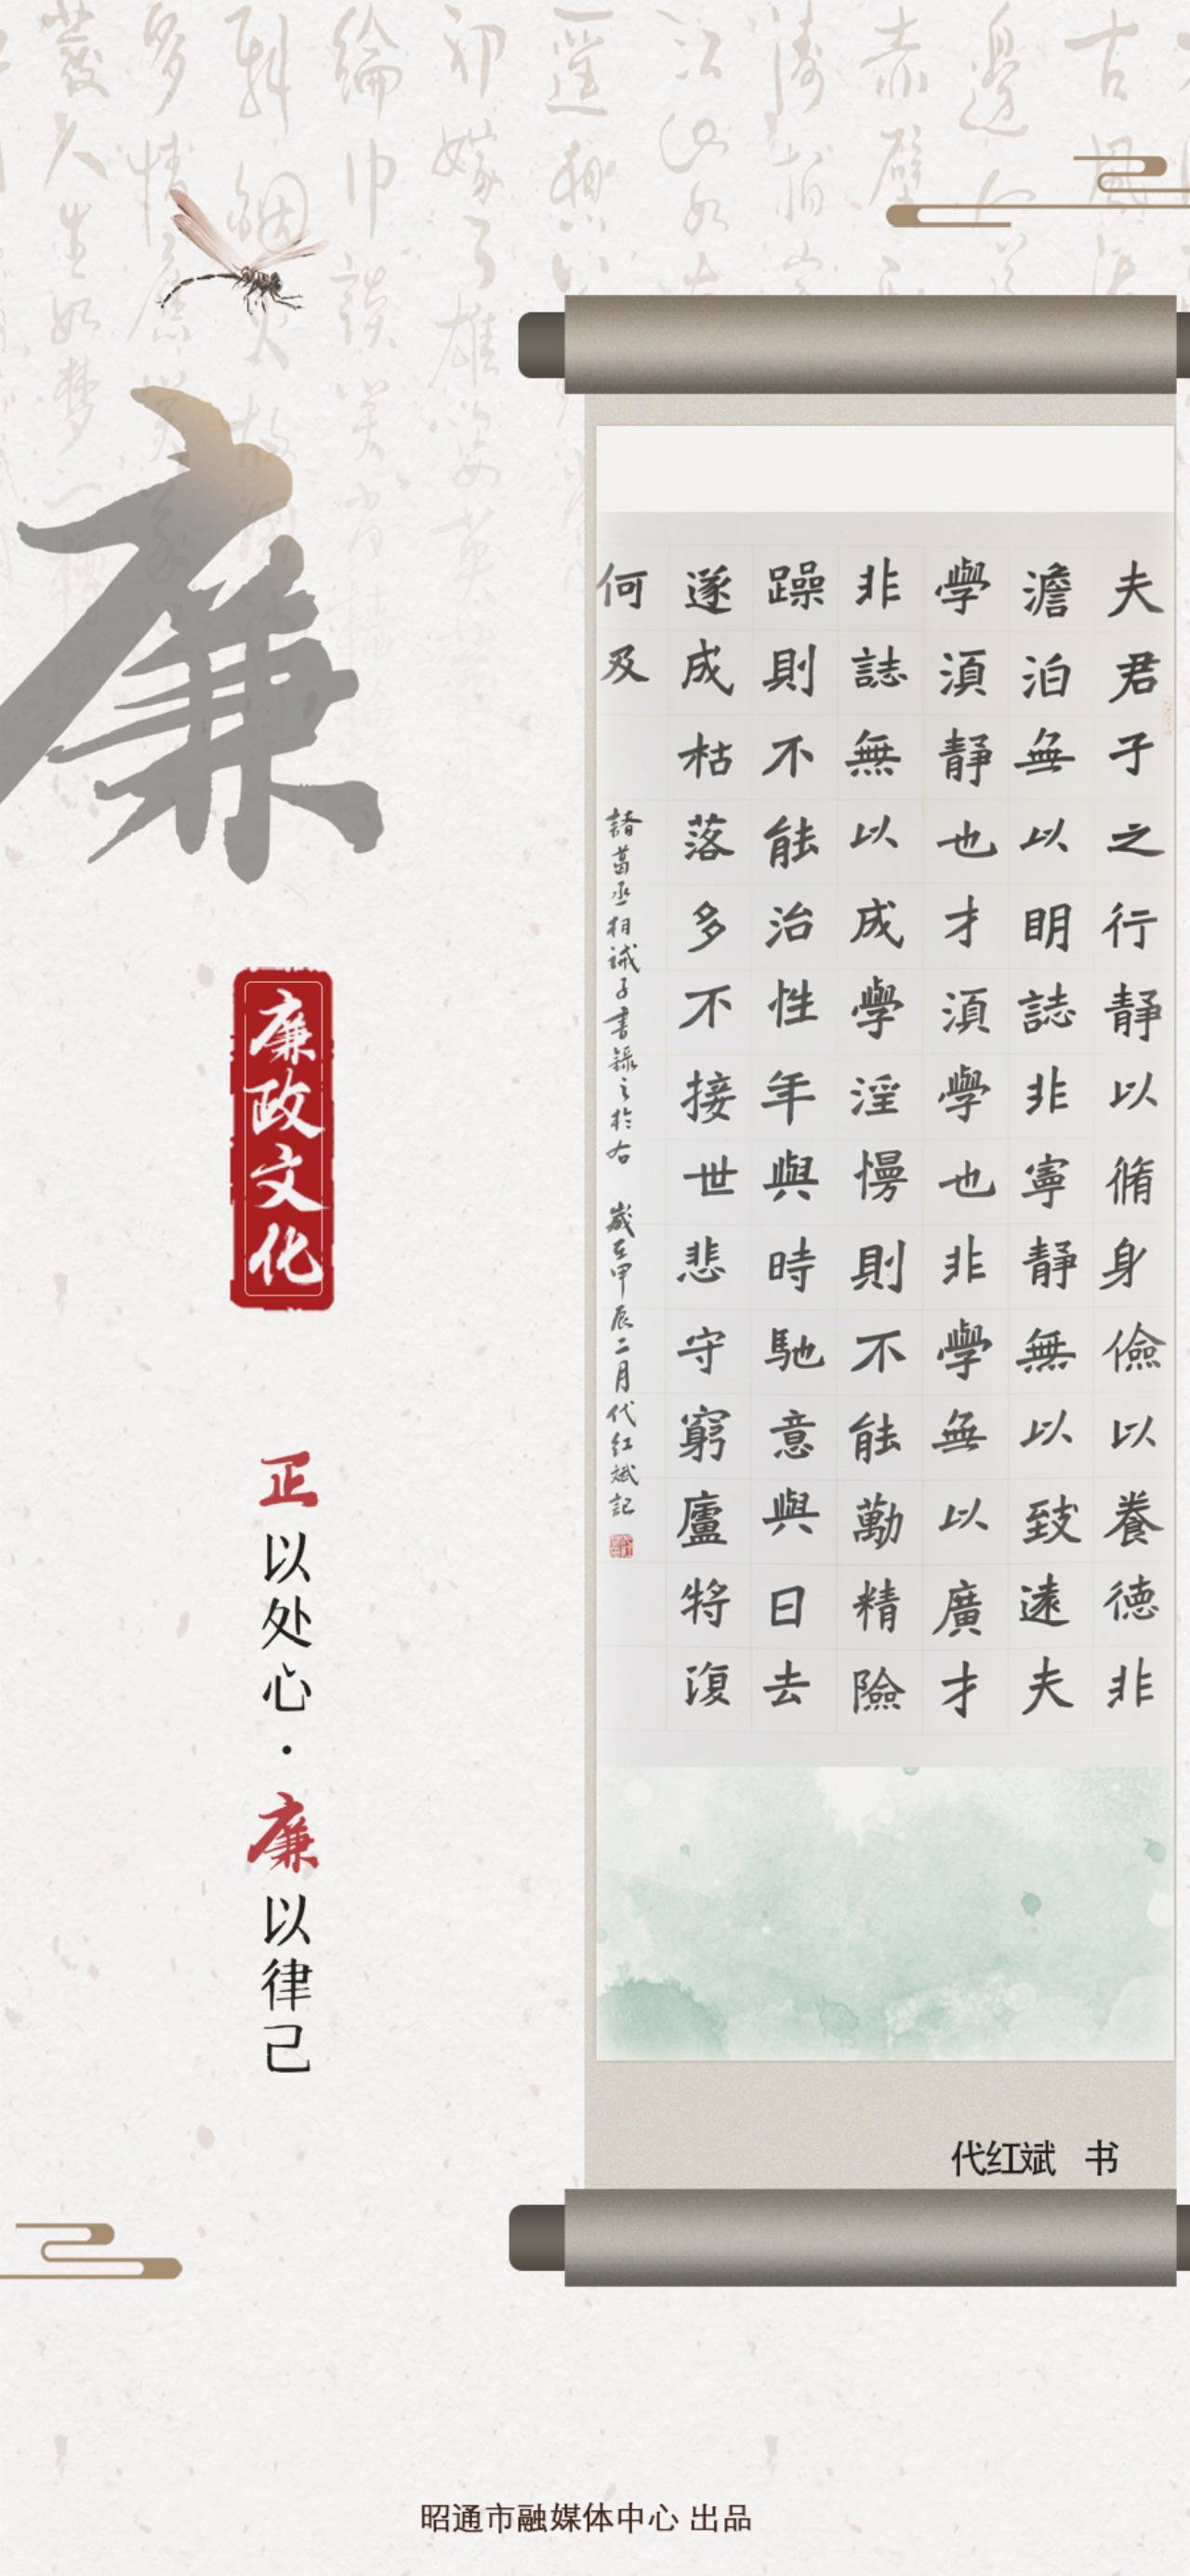 廉
廉政文化
正以处心·廉以律己
夫君子之行靜以脩身儉以養德非
澹泊無以明誌非寧靜無以致遠夫
學須靜也才須學也非學無以廣才
非誌無以成學淫慢則不能勵精險
躁則不能治性年與時馳意與日去
遂成枯落多不接世悲守窮廬將復
何及
諸葛丞相誡子書錄之於右 歲在甲辰二月代红斌記
代红斌 书
昭通市融媒体中心 出品